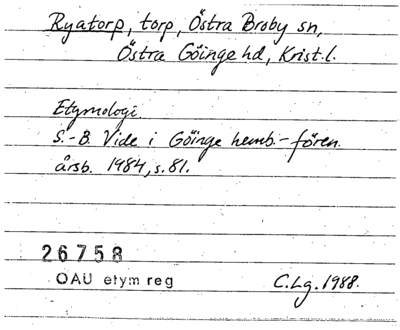 Ryatorp, torp, Östra Broby sn,
Östra Göinge hd, Krist.l.
Etymologi.
S.-B. Vide i Göinge hemb.-fören.
årsb. 1984, s. 81.
26758
OAU etym reg
C.Lg. 1988.